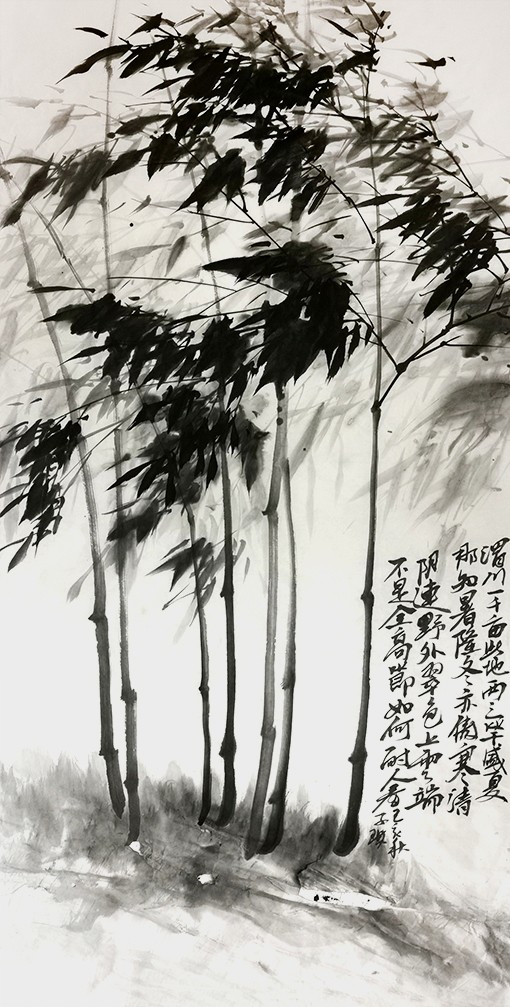 渭川一千亩此地两三竿盛夏
那知暑隆冬亦傲寒清
阴連野外翠色上雲端
不是全高節如何耐人看
己亥秋